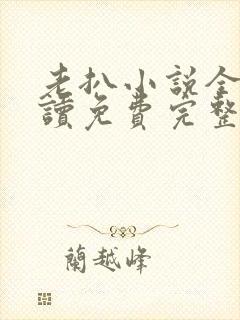 老扒小说全
讀免費完整
蘭越峰